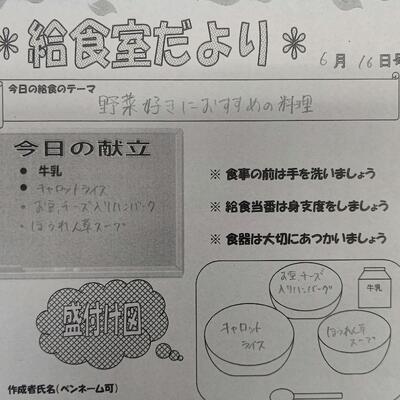 ＊給食室だより＊
6月16日号
今日の給食のテーマ
野菜好きにおすすめの料理
今日の献立
● 牛乳
● キャロットライス
・お豆、チーズ入りハンバーグ
・ほうれん草スープ
※ 食事の前は手を洗いましょう
※ 給食当番は身支度をしましょう
※ 食器は大切にあつかいましょう
盛付け図
お豆、チーズ
入りハンバーグ
牛乳
キャロット
ライス
ほうれん草
スープ
作成者氏名(ペンネーム可)